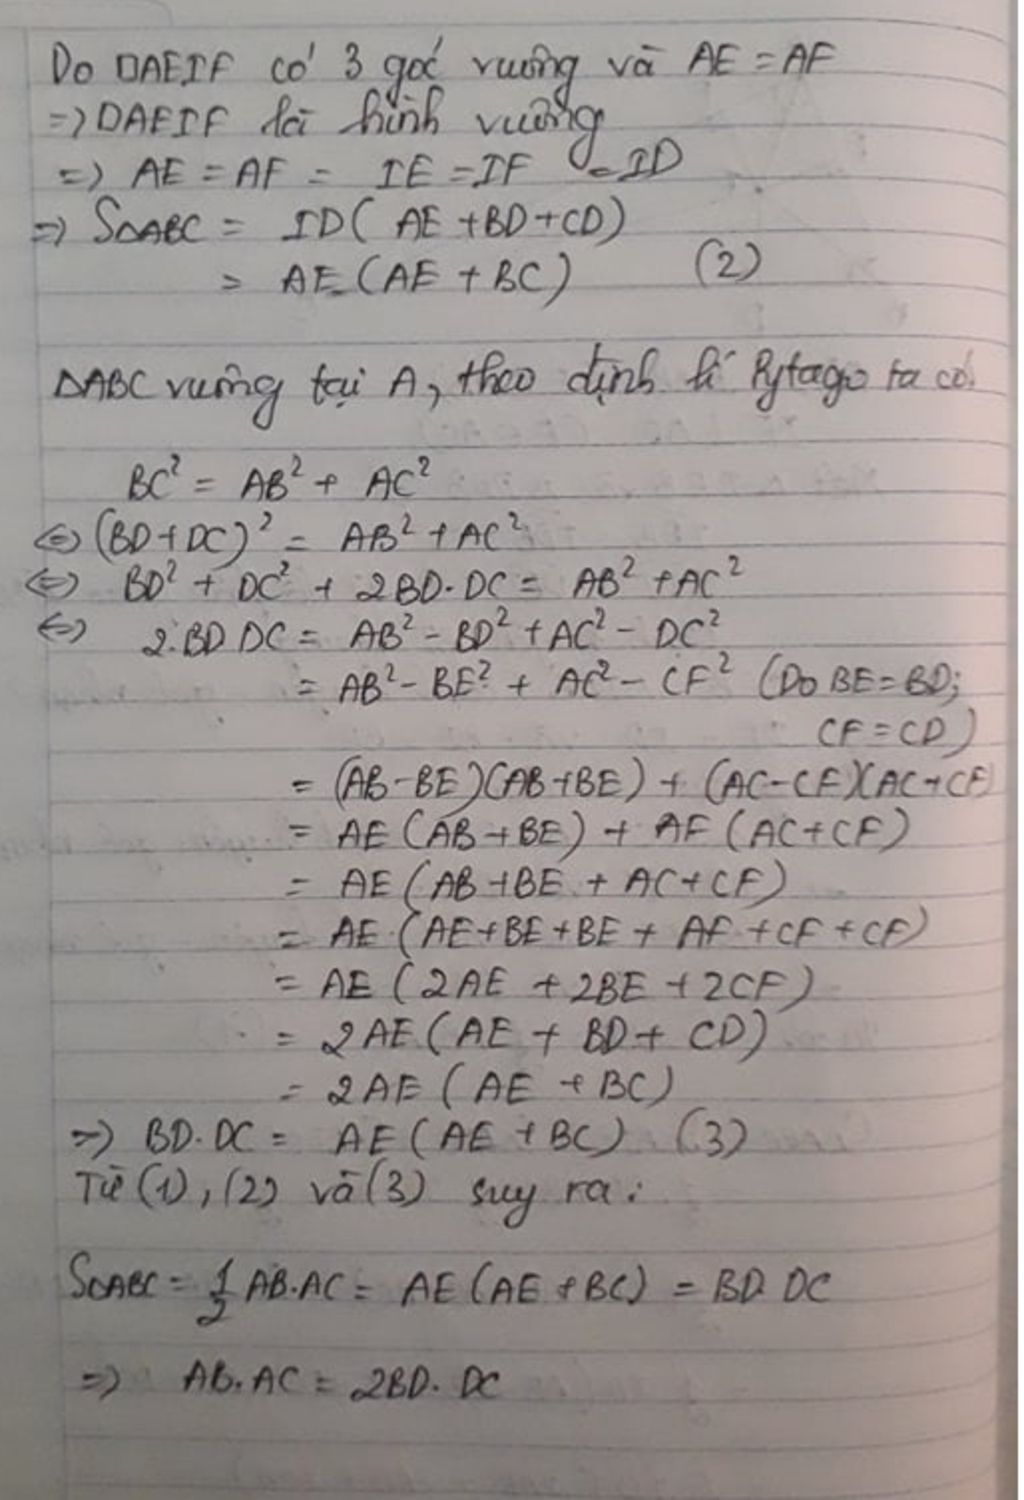 Do □AEIF có 3 góc vuông và AE = AF
=> □AEIF là hình vuông
=> AE = AF = IE = IF = ID
=> S△ABC = ID( AE + BD + CD)
= AE (AE + BC) (2)
△ABC vuông tại A, theo định lí Pytago ta có:
BC² = AB² + AC²
<=> (BD+DC)² = AB² + AC²
<=> BD² + DC² + 2BD.DC = AB² + AC²
<=> 2.BD.DC = AB² - BD² + AC² - DC²
= AB² - BE² + AC² - CF² (Do BE = BD;
CF = CD)
= (AB-BE)(AB+BE) + (AC-CF)(AC+CF)
= AE (AB + BE) + AF (AC+CF)
= AE (AB + BE + AC + CF)
= AE (AE+BE+BE + AF + CF + CF)
= AE (2AE + 2BE + 2CF)
= 2AE (AE + BD + CD)
= 2AE (AE + BC)
=> BD.DC = AE (AE + BC) (3)
Từ (1), (2) và (3) suy ra:
S△ABC = 1/2 AB.AC = AE (AE + BC) = BD.DC
=> AB.AC = 2BD.DC